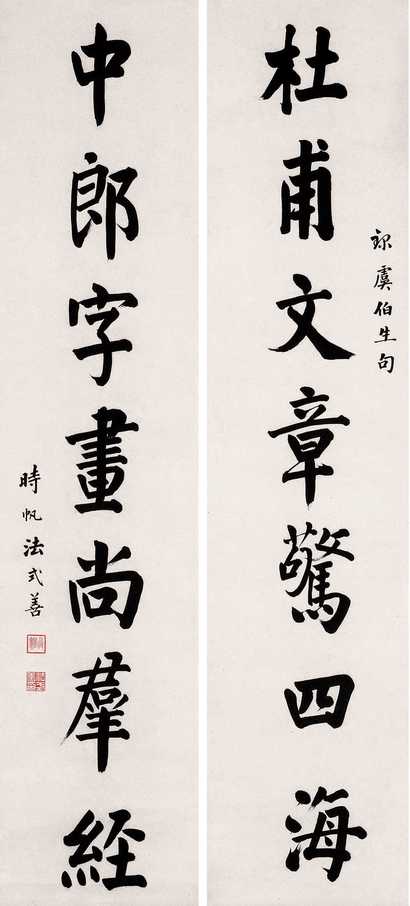 杜甫文章驚四海
录虞伯生句
中郎字畫尚羣經
時帆法式善